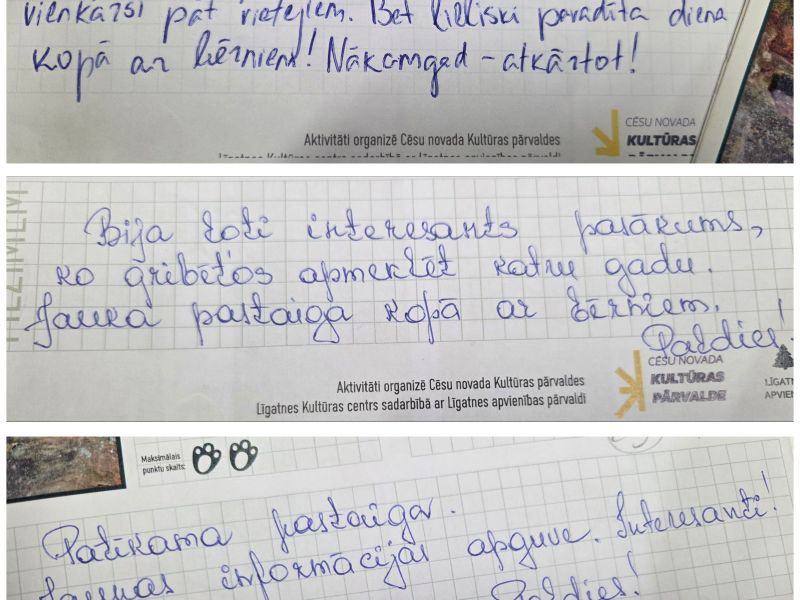 vienkārši pat vietējiem. Bet lieliski pavadīta diena
kopā ar bērniem! Nākamgad - atkārtot!
Aktivitāti organizē Cēsu novada Kultūras pārvaldes
Līgatnes Kultūras centrs sadarbībā ar Līgatnes apvienības pārvaldi
CĒSU NOVADA
KULTŪRAS
PĀRVALDE
Bija ļoti interesants pasākums,
ko gribētos apmeklēt katru gadu.
Jauka pastaiga kopā ar bērniem.
Paldies!
Aktivitāti organizē Cēsu novada Kultūras pārvaldes
Līgatnes Kultūras centrs sadarbībā ar Līgatnes apvienības pārvaldi
CĒSU NOVADA
KULTŪRAS
PĀRVALDE
LĪGATN
APVIEN
Maksimālais
punktu skaits:
Patīkama pastaiga.
Jaunas informācijas apguve. Interesanti!
Paldies!